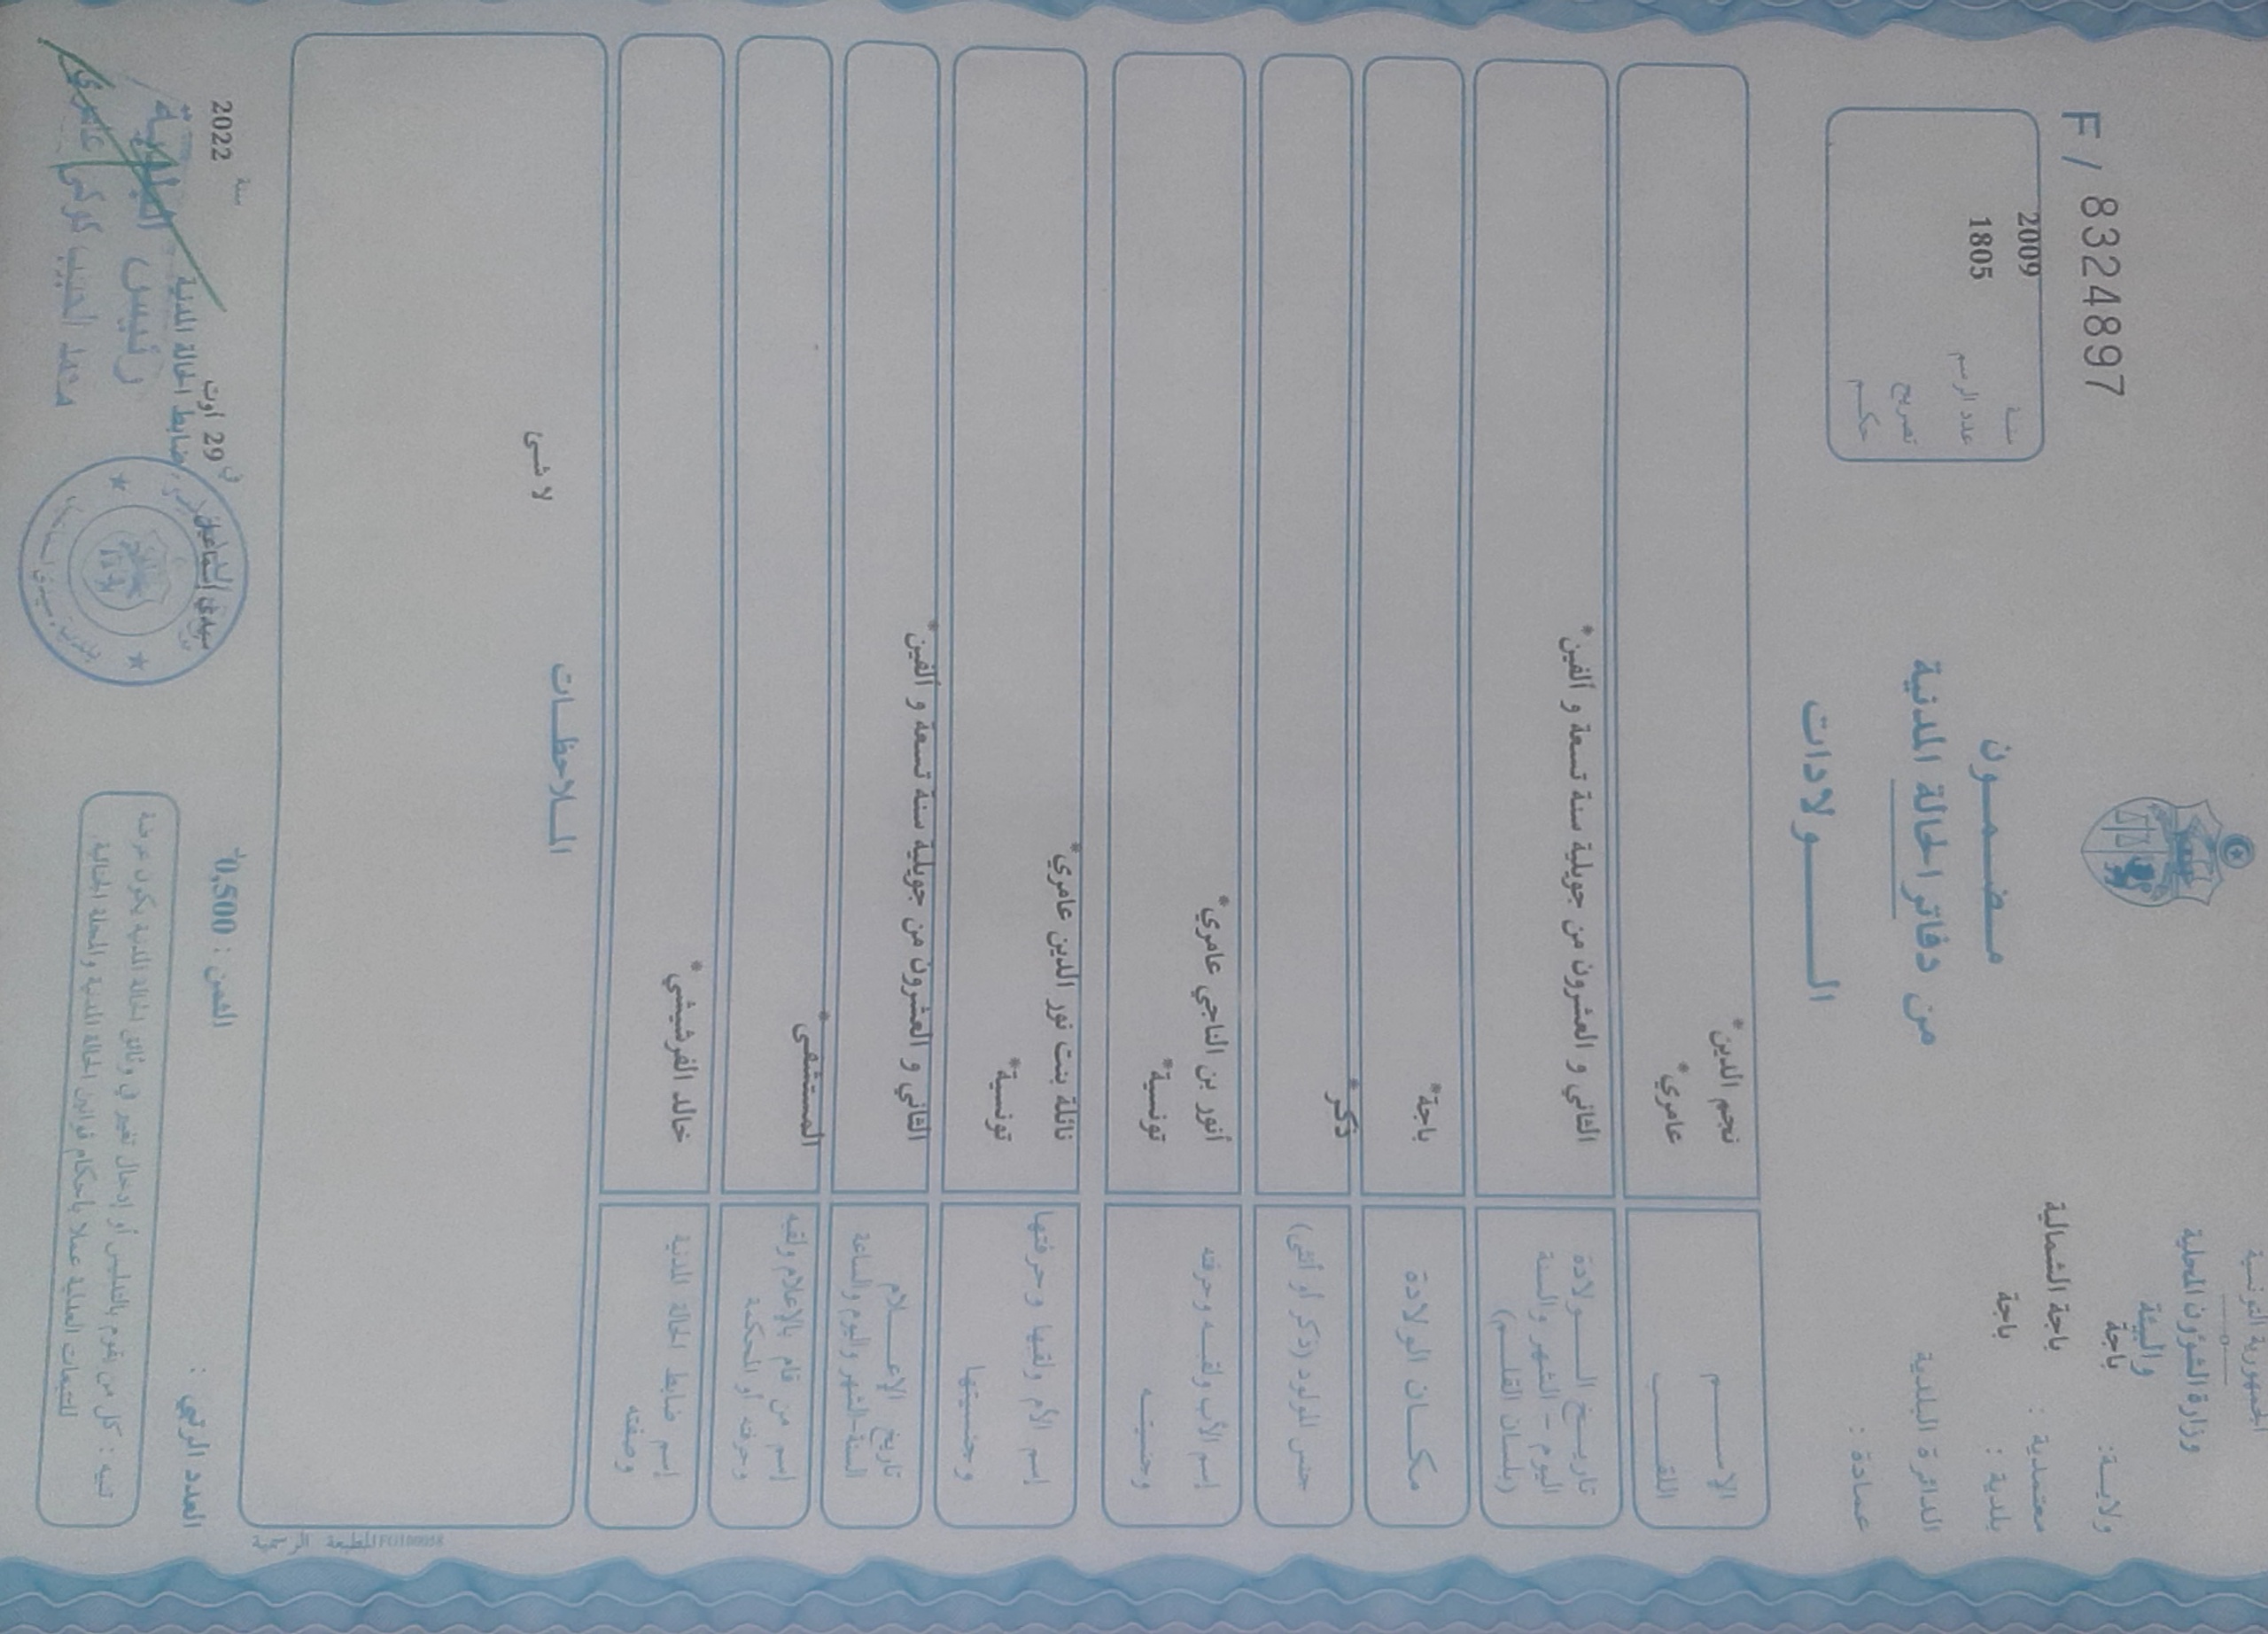 الجمهورية التونسية
وزارة الشؤون المحلية
والبيئة
ولايـة: باجة
معتمدية : باجة الشمالية
بلدية : باجة
الدائرة البلدية
عمادة :
F / 8324897
سنة 2009
عدد الرسم 1805
تصريح
حكم
مضمون
من دفاتر الحالة المدنية
الولادات
الاسم نجم الدين*
اللقب عامري*
تاريخ الولادة
اليوم - الشهر والسنة
(بلسان القلم)
الثاني و العشرون من جويلية سنة تسعة و ألفين*
مكان الولادة باجة*
جنس المولود (ذكر أو أنثى) ذكر*
إسم الأب ولقبه وحرفته أنور بن الناجي عامري*
وجنسيته تونسية*
إسم الأم ولقبها وحرفتها نائلة بنت نور الدين عامري*
وجنسيتها تونسية*
تاريخ الإعلام
السنة-الشهر واليوم والساعة
الثاني و العشرون من جويلية سنة تسعة و ألفين*
إسم من قام بالإعلام ولقبه
وحرفته أو المحكمة
المستشفى*
إسم ضابط الحالة المدنية
وصفته
خالد الفرشيشي*
الملاحظات
لا شئ
المطبعة الرسمية
العدد الرتبي :
الثمن : 0,500د
في 29 أوت سنة 2022
سيدي إسماعيل
ضابط الحالة المدنية
رئيس البلدية
محمد الحبيب عامري
تنبيه : كل من يقوم بالتدليس أو إدخال تغيير في وثائق الحالة المدنية يكون عرضة
للتبعات العدلية عملا بأحكام قوانين الحالة المدنية والمجلة الجنائية